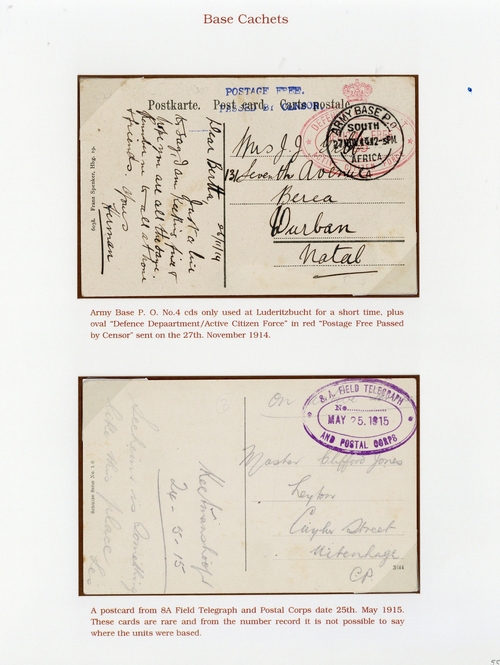 Base Cachets
POSTAGE FREE.
PASSED BY CENSOR.
Postkarte. Post card. Carte postale
ARMY BASE P.O.
SOUTH
AFRICA
Dear Bertha
26/11/14
Just a line
to say I am feeling fine &
hope you are all the same.
to all at home
& friends. Yours
Herman
Mrs J.J.
131 Seventh Avenue
Berea
Durban
Natal
Army Base P. O. No.4 cds only used at Luderitzbucht for a short time, plus
oval "Defence Depaartment/Active Citizen Force" in red "Postage Free Passed
by Censor" sent on the 27th. November 1914.
S.A. FIELD TELEGRAPH
No.
MAY 25. 1915
AND POSTAL CORPS
On
Master Clifford Jones
Leyton
Cuyler Street
Uitenhage
C.P.
3144
Keetmanshoop
24-5-15
something
like this place
A postcard from 8A Field Telegraph and Postal Corps date 25th. May 1915.
These cards are rare and from the number record it is not possible to say
where the units were based.